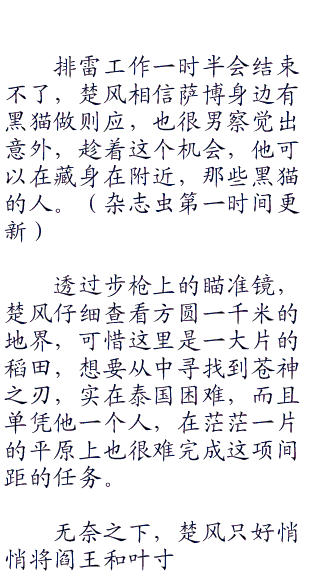 排雷工作一时半会结束
不了，楚风相信萨博身边有
黑猫做则应，也很男察觉出
意外，趁着这个机会，他可
以在藏身在附近，那些黑猫
的人。（杂志虫第一时间更
新）
透过步枪上的瞄准镜，
楚风仔细查看方圆一千米的
地界，可惜这里是一大片的
稻田，想要从中寻找到苍神
之刃，实在泰国困难，而且
单凭他一个人，在茫茫一片
的平原上也很难完成这项间
距的任务。
无奈之下，楚风只好悄
悄将阎王和叶寸